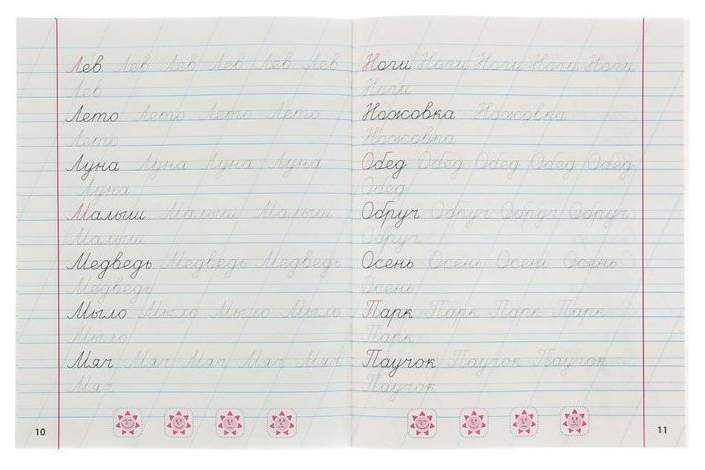 Лев Лев Лев Лев Лев Лев
Лев
Лето Лето Лето Лето
Лето
Луна Луна Луна Луна
Луна
Малыш Малыш Малыш
Малыш
Медведь Медведь Медведь
Медведь
Мыло Мыло Мыло Мыло
Мыло
Мяч Мяч Мяч Мяч Мяч
Мяч
10
Ноги Ноги Ноги Ноги Ноги
Ноги
Ножовка Ножовка
Ножовка
Обед Обед Обед Обед Обед
Обед
Обруч Обруч Обруч Обруч
Обруч
Осень Осень Осень Осень
Осень
Парк Парк Парк Парк
Парк
Паучок Паучок Паучок
Паучок
11